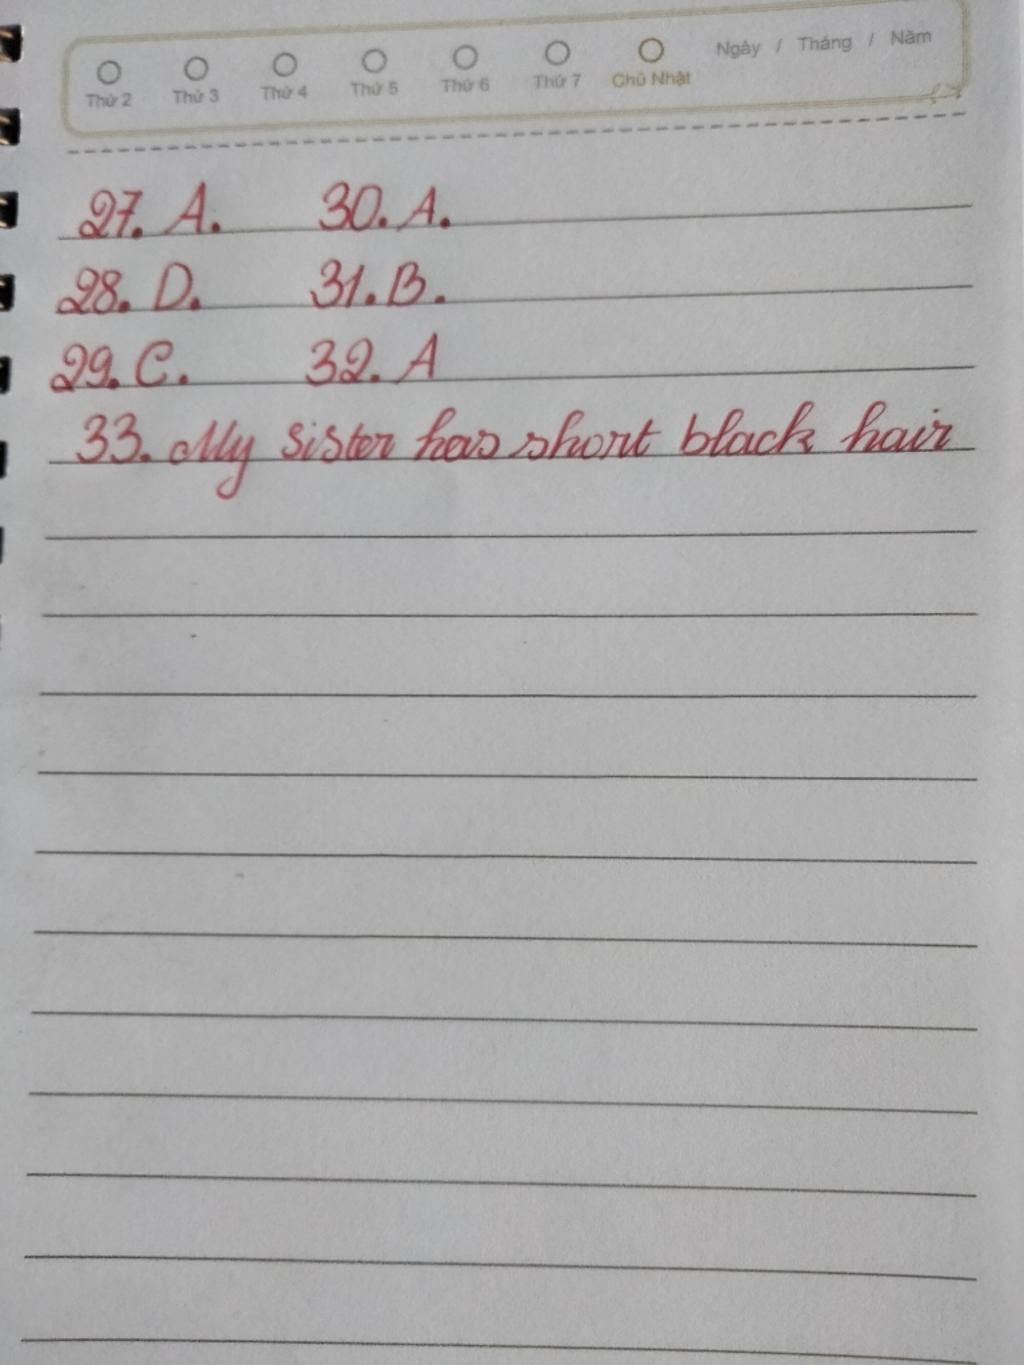 Thứ 2 Thứ 3 Thứ 4 Thứ 5 Thứ 6 Thứ 7 Chủ Nhật Ngày / Tháng / Năm
27. A. 30. A.
28. D. 31. B.
29. C. 32. A
33. My sister has short black hair